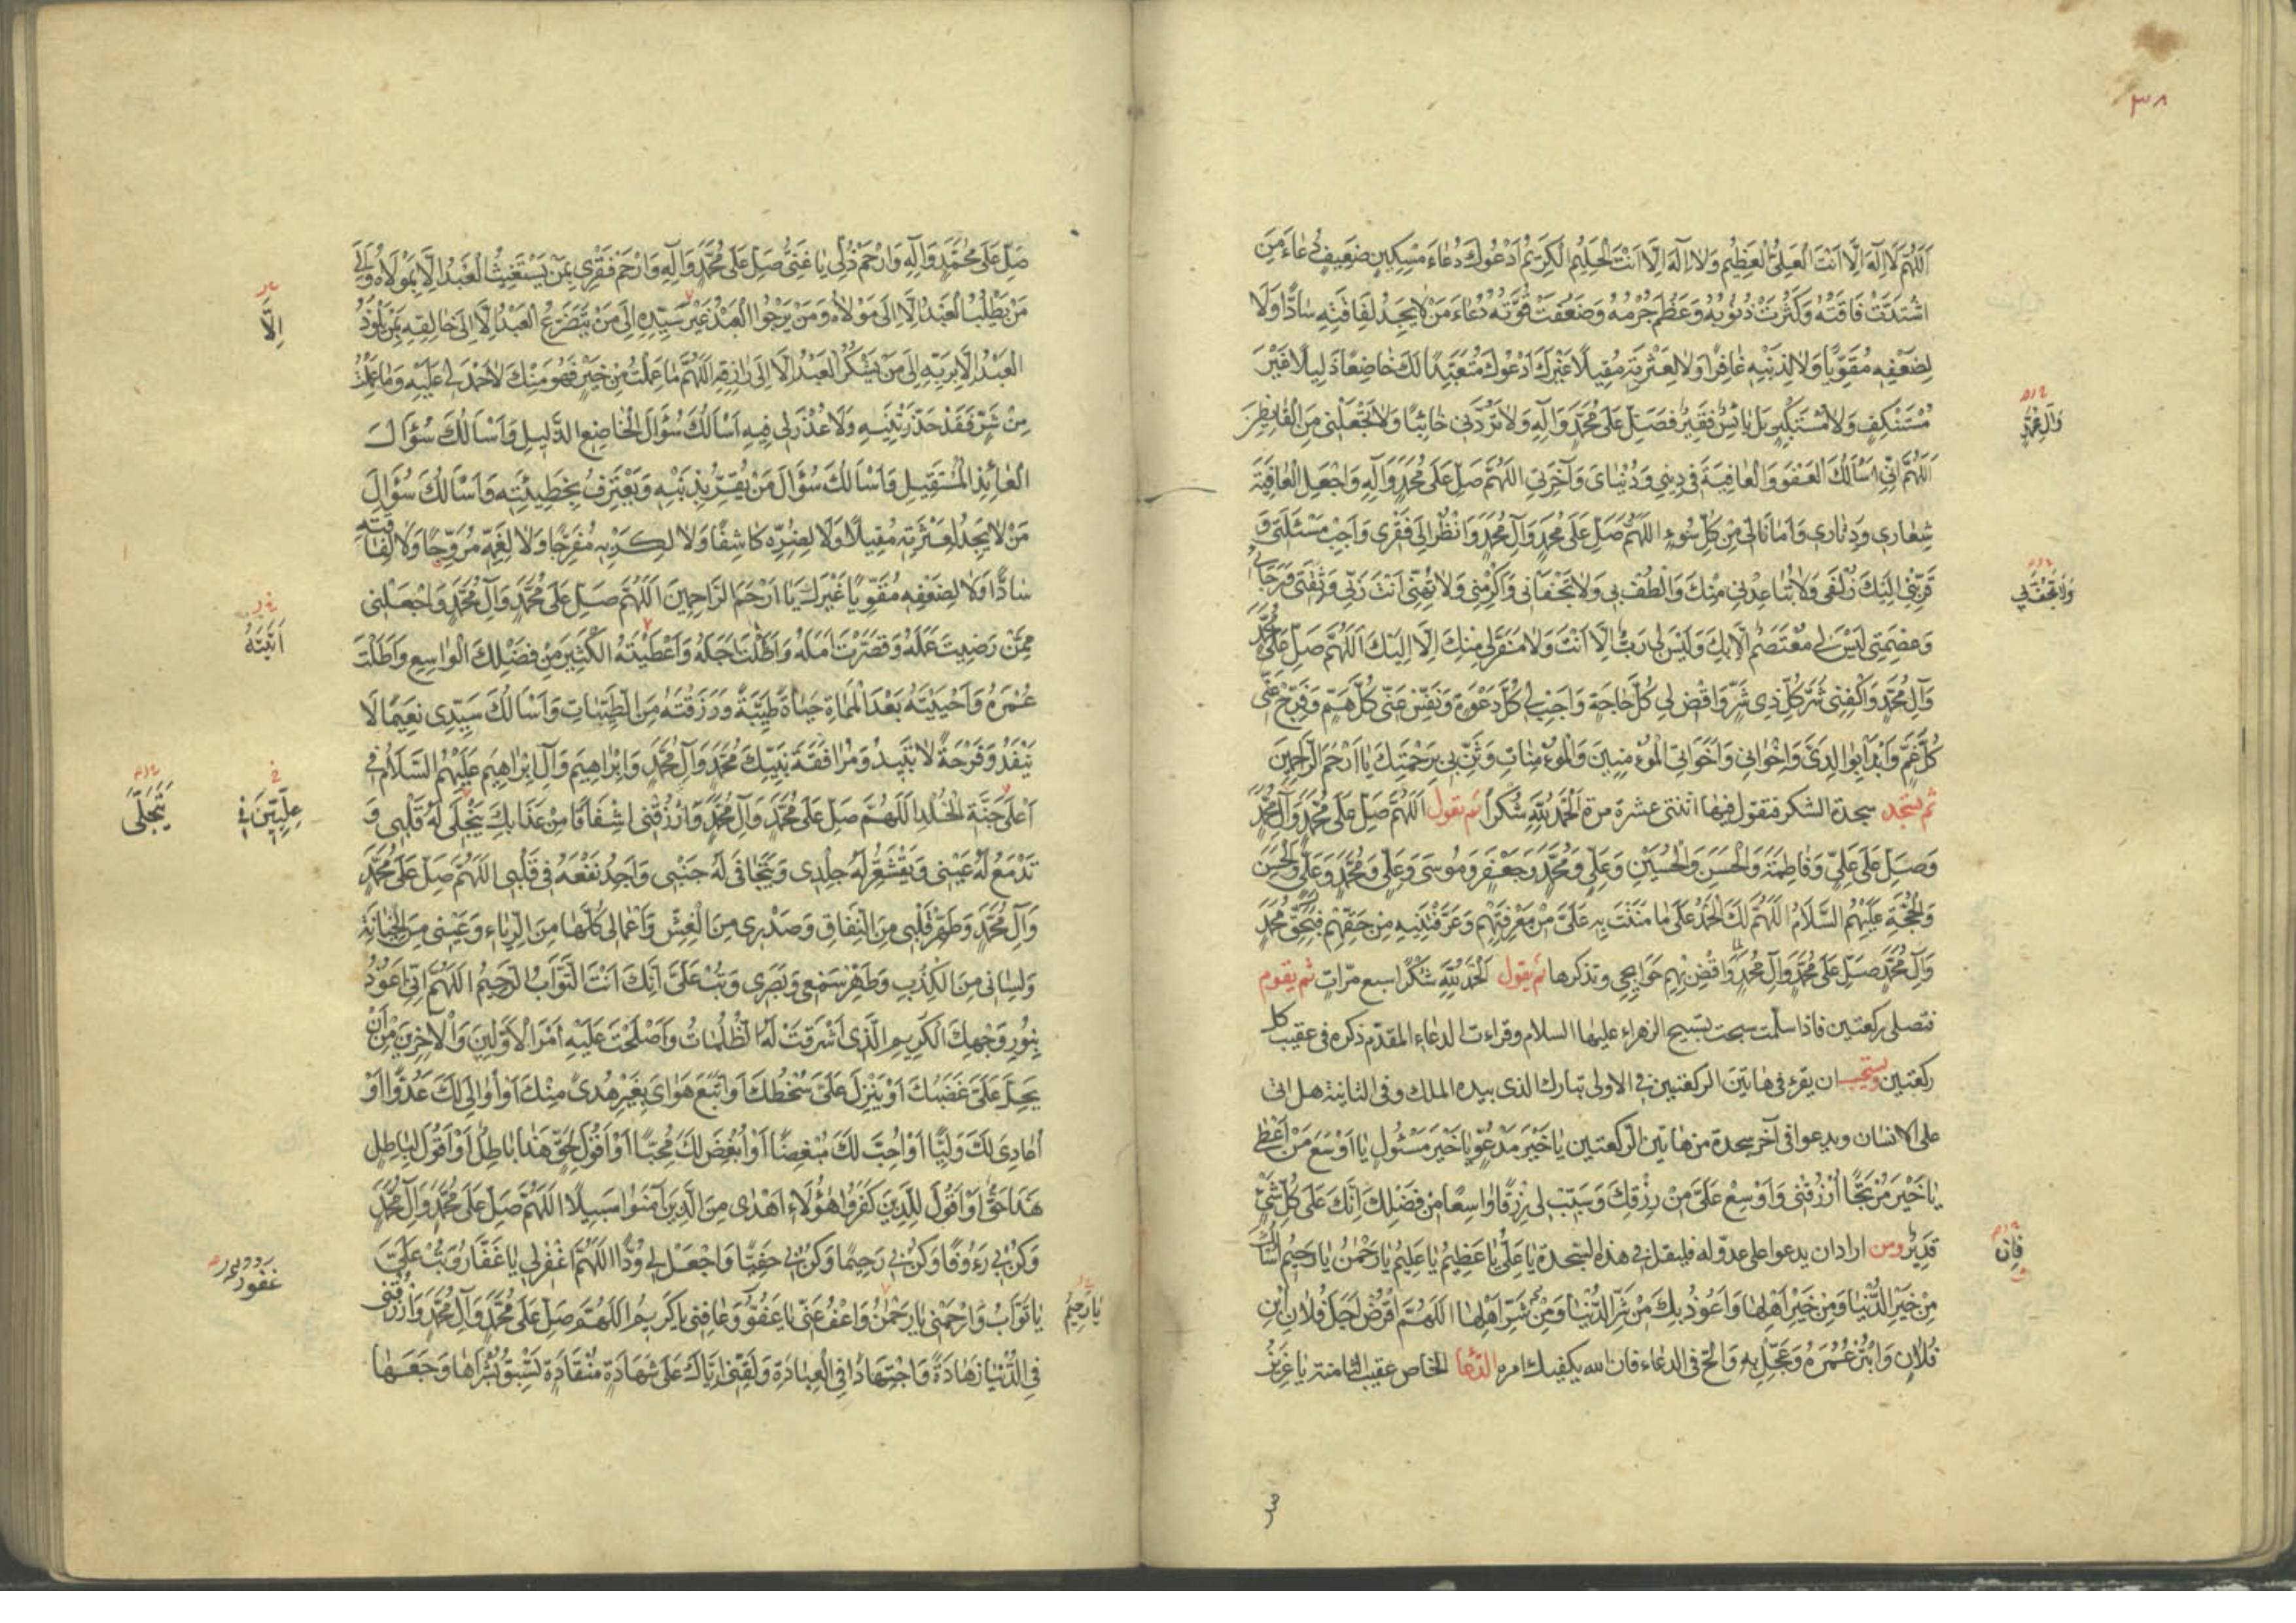 ٣٨
اَللّهُمَّ لَا اِلٰهَ اِلَّا اَنْتَ الْعَلِيُّ الْعَظِيمُ وَلَا اِلٰهَ اِلَّا اَنْتَ الْحَلِيمُ الْكَرِيمُ اَدْعُوكَ دُعَاءَ مِسْكِينٍ ضَعِيفٍ دُعَاءَ مَنِ
اشْتَدَّتْ فَاقَتُهُ وَكَثُرَتْ ذُنُوبُهُ وَعَظُمَ جُرْمُهُ وَضَعُفَتْ قُوَّتُهُ دُعَاءَ مَنْ لَا يَجِدُ لِفَاقَتِهِ سَادًّا وَلَا
لِضَعْفِهِ مُقَوِّيًا وَلَا لِذَنْبِهِ غَافِرًا وَلَا لِعَثْرَتِهِ مُقِيلًا غَيْرَكَ اَدْعُوكَ مُتَعَبِّدًا لَكَ خَاضِعًا ذَلِيلًا غَيْرَ
مُسْتَنْكِفٍ وَلَا مُسْتَكْبِرٍ بَلْ بَائِسٌ فَقِيرٌ فَصَلِّ عَلَى مُحَمَّدٍ وَآلِهِ وَلَا تَرُدَّنِي خَائِبًا وَلَا تَجْعَلْنِي مِنَ الْقَانِطِينَ
وَآلِ مُحَمَّدٍ
اَللّهُمَّ اِنِّي اَسْاَلُكَ الْعَفْوَ وَالْعَافِيَةَ فِي دِينِي وَدُنْيَايَ وَآخِرَتِي اللّهُمَّ صَلِّ عَلَى مُحَمَّدٍ وَآلِهِ وَاجْعَلِ الْعَافِيَةَ
شِعَارِي وَدِثَارِي وَاَمَانًا لِي مِنْ كُلِّ سُوءٍ اللّهُمَّ صَلِّ عَلَى مُحَمَّدٍ وَآلِ مُحَمَّدٍ وَانْظُرْ اِلَى فَقْرِي وَاَجِبْ مَسْئَلَتِي وَ
قَرِّبْنِي اِلَيْكَ زُلْفَى وَلَا تُبَاعِدْنِي مِنْكَ وَالْطُفْ بِي وَلَا تَجْفَانِي وَاَكْرِمْنِي وَلَا تُهِنِّي اَنْتَ رَبِّي وَثِقَتِي وَرَجَائِي
وَلَا تَجْفُنِي
وَعِصْمَتِي لَيْسَ لِي مُعْتَصَمٌ اِلَّا بِكَ وَلَيْسَ لِي رَبٌّ اِلَّا اَنْتَ وَلَا مَفَرَّ لِي مِنْكَ اِلَّا اِلَيْكَ اَللّهُمَّ صَلِّ عَلَى مُحَمَّدٍ
وَآلِ مُحَمَّدٍ وَاكْفِنِي شَرَّ كُلِّ ذِي شَرٍّ وَاقْضِ لِي كُلَّ حَاجَةٍ وَاَجِبْ لِي كُلَّ دَعْوَةٍ وَنَفِّسْ عَنِّي كُلَّ هَمٍّ وَفَرِّجْ عَنِّي
كُلَّ غَمٍّ وَابْدَأْ بِوَالِدَيَّ وَاِخْوَانِي وَاَخَوَاتِي الْمُؤْمِنِينَ وَالْمُؤْمِنَاتِ وَثَنِّ بِي بِرَحْمَتِكَ يَا اَرْحَمَ الرَّاحِمِينَ
ثم تسجد سجدة الشكر فتقول فيها اثنتى عشرة مرة اَلْحَمْدُ لِلّهِ شُكْرًا ثم تقول اَللّهُمَّ صَلِّ عَلَى مُحَمَّدٍ وَآلِ مُحَمَّدٍ
وَصَلِّ عَلَى عَلِيٍّ وَفَاطِمَةَ وَالْحَسَنِ وَالْحُسَيْنِ وَعَلِيٍّ وَمُحَمَّدٍ وَجَعْفَرٍ وَمُوسَى وَعَلِيٍّ وَمُحَمَّدٍ وَعَلِيٍّ وَالْحَسَنِ
وَالْحُجَّةِ عَلَيْهِمُ السَّلَامُ اللّهُمَّ لَكَ الْحَمْدُ عَلَى مَا مَنَنْتَ بِهِ عَلَيَّ مِنْ مَعْرِفَتِهِمْ وَعَرَّفْتَنِيهِ مِنْ حَقِّهِمْ فَبِحَقِّ مُحَمَّدٍ
وَآلِ مُحَمَّدٍ صَلِّ عَلَى مُحَمَّدٍ وَآلِ مُحَمَّدٍ وَاقْضِ بِهِمْ حَوَائِجِي وتذكرها ثم يقول اَلْحَمْدُ لِلّهِ شُكْرًا سبع مرّات ثم يقوم
فتصلى ركعتين فاذا سلّمت سبحت تسبيح الزهراء عليها السلام وقرات الدعاء المقدّم ذكره فى عقيب كل
ركعتين ويستحب ان يقرء فى هاتين الركعتين فى الاولى تبارك الذى بيده الملك وفى الثانية هل اتى
على الانسان ويدعوا فى آخر سجدة من هاتين الركعتين يَا خَيْرَ مَدْعُوٍّ يَا خَيْرَ مَسْئُولٍ يَا اَوْسَعَ مَنْ اَعْطَى
يَا خَيْرَ مُرْتَجًا اُرْزُقْنِي وَاَوْسِعْ عَلَيَّ مِنْ رِزْقِكَ وَسَبِّبْ لِي رِزْقًا وَاسِعًا مِنْ فَضْلِكَ اِنَّكَ عَلَى كُلِّ شَيْءٍ
قَدِيرٌ ومن اراد ان يدعوا على عدوّ له فليقل فى هذه السجدة يَا عَلِيُّ يَا عَظِيمُ يَا عَلِيمُ يَا رَحْمٰنُ يَا رَحِيمُ اَسْاَلُكَ
فَاِنْ
مِنْ خَيْرِ الدُّنْيَا وَمِنْ خَيْرِ اَهْلِهَا وَاَعُوذُ بِكَ مِنْ شَرِّ الدُّنْيَا وَمِنْ شَرِّ اَهْلِهَا اللّهُمَّ اقْرِضْ اَجَلَ فُلَانِ ابْنِ
فُلَانٍ وَابْتُرْ عُمُرَهُ وَعَجِّلْ بِهِ وَالحّ فى الدعاء فان الله يكفيك امره الدعا الخاص عقيب الثامنة يَا عَزِيزُ
صَلِّ عَلَى مُحَمَّدٍ وَآلِهِ وَارْحَمْ ذُلِّي يَا غَنِيُّ صَلِّ عَلَى مُحَمَّدٍ وَآلِهِ وَارْحَمْ فَقْرِي بِمَنْ يَسْتَغِيثُ الْعَبْدُ اِلَّا بِمَوْلَاهُ وَاِلَى
مَنْ يَطْلُبُ الْعَبْدُ اِلَّا اِلَى مَوْلَاهُ وَمَنْ يَرْجُوا الْعَبْدُ غَيْرَ سَيِّدِهِ اِلَى مَنْ يَتَضَرَّعُ الْعَبْدُ اِلَّا اِلَى خَالِقِهِ بِمَنْ يَلُوذُ
اِلَّا
الْعَبْدُ اِلَّا بِرَبِّهِ اِلَى مَنْ يَشْكُرُ الْعَبْدُ اِلَّا اِلَى رَازِقِهِ اَللّهُمَّ مَا عَمِلْتُ مِنْ خَيْرٍ فَهُوَ مِنْكَ لَا حَمْدَ لِي عَلَيْهِ وَمَا عَمِلْتُ
مِنْ شَرٍّ فَقَدْ حَذَّرْتَنِيهِ وَلَا عُذْرَ لِي فِيهِ اَسْاَلُكَ سُؤَالَ الْخَاضِعِ الذَّلِيلِ وَاَسْاَلُكَ سُؤَالَ
الْعَائِذِ الْمُسْتَقِيلِ وَاَسْاَلُكَ سُؤَالَ مَنْ يُقِرُّ بِذَنْبِهِ وَيَعْتَرِفُ بِخَطِيئَتِهِ وَاَسْاَلُكَ سُؤَالَ
مَنْ لَا يَجِدُ لِعَثْرَتِهِ مُقِيلًا وَلَا لِضُرِّهِ كَاشِفًا وَلَا لِكَرْبِهِ مُفَرِّجًا وَلَا لِغَمِّهِ مُرَوِّحًا وَلَا لِفَاقَتِهِ
سَادًّا وَلَا لِضَعْفِهِ مُقَوِّيًا غَيْرَكَ يَا اَرْحَمَ الرَّاحِمِينَ اَللّهُمَّ صَلِّ عَلَى مُحَمَّدٍ وَآلِ مُحَمَّدٍ وَاجْعَلْنِي
مِمَّنْ رَضِيتَ عَمَلَهُ وَقَصَّرْتَ اَمَلَهُ وَاَطَلْتَ اَجَلَهُ وَاَعْطَيْتَهُ الْكَثِيرَ مِنْ فَضْلِكَ الْوَاسِعِ وَاَطَلْتَ
عُمُرَهُ وَاَحْيَيْتَهُ بَعْدَ الْمَمَاةِ حَيَاةً طَيِّبَةً وَرَزَقْتَهُ مِنَ الطَّيِّبَاتِ وَاَسْاَلُكَ سَيِّدِي نَعِيمًا لَا
يَنْفَدُ وَفَرْحَةً لَا تَبِيدُ وَمُرَافَقَةَ نَبِيِّكَ مُحَمَّدٍ وَآلِ مُحَمَّدٍ وَاِبْرَاهِيمَ وَآلِ اِبْرَاهِيمَ عَلَيْهِمُ السَّلَامُ فِي
اَعْلَى جَنَّةِ الْخُلْدِ اَللّهُمَّ صَلِّ عَلَى مُحَمَّدٍ وَآلِ مُحَمَّدٍ وَارْزُقْنِي اِشْفَاقًا مِنْ عَذَابِكَ يَنْجَلِي لَهُ قَلْبِي وَ
عِلِّيِّينَ فِي
يَتَجَلَّى
تَدْمَعُ لَهُ عَيْنِي وَيَقْشَعِرُّ لَهُ جِلْدِي وَيَتَجَافَى لَهُ جَنْبِي وَاَجِدُ نَفْعَهُ فِي قَلْبِي اللّهُمَّ صَلِّ عَلَى مُحَمَّدٍ
وَآلِ مُحَمَّدٍ وَطَهِّرْ قَلْبِي مِنَ النِّفَاقِ وَصَدْرِي مِنَ الْغِشِّ وَاَعْمَالِي كُلَّهَا مِنَ الرِّيَاءِ وَعَيْنِي مِنَ الْخِيَانَةِ
وَلِسَانِي مِنَ الْكَذِبِ وَطَهِّرْ سَمْعِي وَبَصَرِي وَتُبْ عَلَيَّ اِنَّكَ اَنْتَ التَّوَّابُ الرَّحِيمُ اللّهُمَّ اِنِّي اَعُوذُ
بِنُورِ وَجْهِكَ الْكَرِيمِ الَّذِي اَشْرَقَتْ لَهُ الظُّلُمَاتُ وَاَصْلَحْتَ عَلَيْهِ اَمْرَ الْاَوَّلِينَ وَالْآخِرِينَ مِنْ اَنْ
يَحِلَّ عَلَيَّ غَضَبُكَ اَوْ يَنْزِلَ عَلَيَّ سَخَطُكَ اَوْ اَتَّبِعَ هَوَايَ بِغَيْرِ هُدًى مِنْكَ اَوْ اُوَالِيَ لَكَ عَدُوًّا اَوْ
اُعَادِيَ لَكَ وَلِيًّا اَوْ اُحِبَّ لَكَ مُبْغِضًا اَوْ اُبْغِضَ لَكَ مُحِبًّا اَوْ اَقُولَ لِحَقٍّ هَذَا بَاطِلٌ اَوْ اَقُولَ لِبَاطِلٍ
هَذَا حَقٌّ اَوْ اَقُولَ لِلَّذِينَ كَفَرُوا هٰؤُلَاءِ اَهْدَى مِنَ الَّذِينَ آمَنُوا سَبِيلًا اللّهُمَّ صَلِّ عَلَى مُحَمَّدٍ وَآلِ مُحَمَّدٍ
وَكُنْ بِي رَءُوفًا وَكُنْ بِي رَحِيمًا وَكُنْ بِي حَفِيًّا وَاجْعَلْ لِي وُدًّا اللّهُمَّ اغْفِرْ لِي يَا غَفَّارُ وَتُبْ عَلَيَّ
غفور
يَا تَوَّابُ وَارْحَمْنِي يَا رَحْمٰنُ وَاعْفُ عَنِّي يَا عَفُوُّ وَعَافِنِي يَا كَرِيمُ اللّهُمَّ صَلِّ عَلَى مُحَمَّدٍ وَآلِ مُحَمَّدٍ وَارْزُقْنِي
يَا رَحِيمُ
فِي الدُّنْيَا زَهَادَةً وَاجْتِهَادًا فِي الْعِبَادَةِ وَلَقِّنِي اِيَّاكَ عَلَى شَهَادَةٍ مُنْقَادَةٍ تَسْبِقُ بُشْرَاهَا وَجَعَهَا